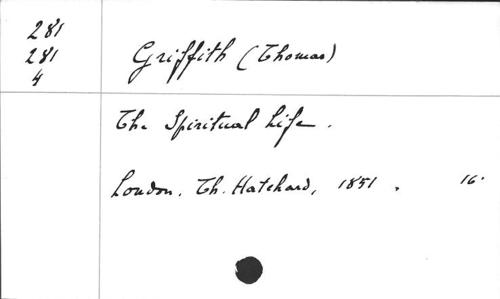 281
281
4
Griffith (Thomas)
The Spiritual Life.
London, Th. Hatchard, 1851, 16.